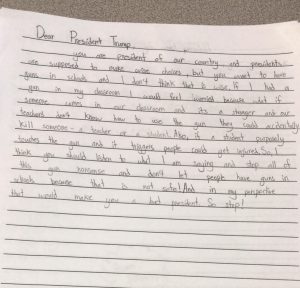 Dear President Trump
you are president of our country and presidents
are supposed to make wise choices but you want to have
guns in schools and I don't think that is wise. If I had a
gun in my classroom I would feel worried because what if
someone comes in our classroom and its a stranger and our
teachers don't know how to use the gun they could accidentely
kill someone - a teacher or a student. Also, if a student purposely
touches the gun and it triggers people could get injured. So, I
think you should listen to what I am saying and stop all of
this gun nonsense and don't let people have guns in
schools because that is not safe! And in my perspective
that would make you a bad president. So stop!